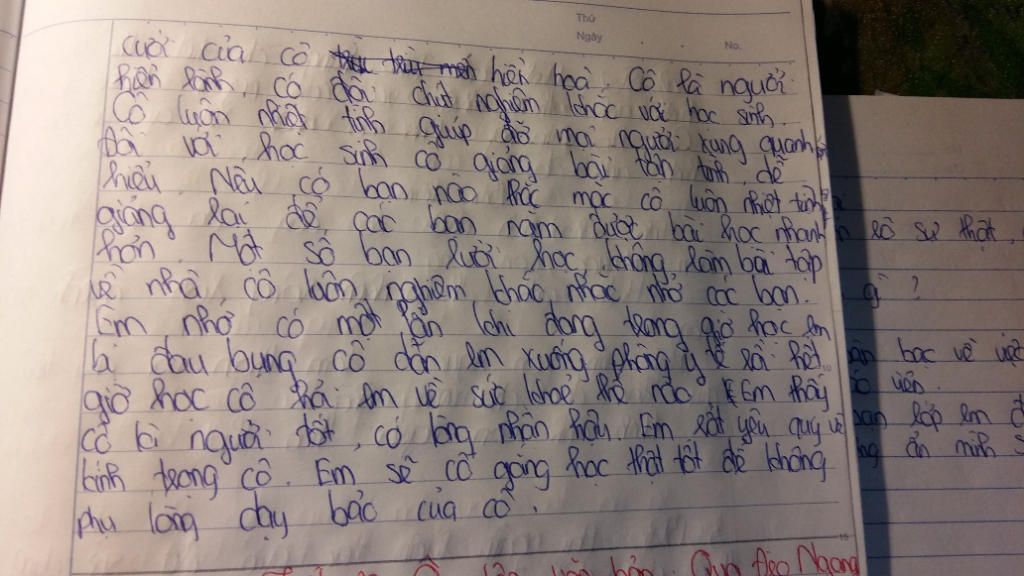 Thứ
Ngày
No.
cười của cô hiền hoà. Cô là người
hiền lành, có đôi chút nghiêm khắc với học sinh.
Cô luôn nhiệt tình giúp đỡ mọi người xung quanh
Đối với học sinh cô giảng bài tận tình, dễ
hiểu. Nếu có bạn nào thắc mắc cô luôn nhiệt tình
giảng lại để các bạn nắm được bài học nhanh
hơn. Một số bạn lười học, không làm bài tập
về nhà, cô luôn nghiêm khắc nhắc nhở các bạn.
Em nhớ có một lần khi đang trong giờ học em
bị đau bụng cô dẫn em xuống phòng y tế rồi hết
giờ học cô hỏi em về sức khoẻ thế nào. Em thấy
cô là người tốt, có lòng nhân hậu. Em rất yêu quý và
kính trọng cô. Em sẽ cố gắng học thật tốt để không
phụ lòng dạy bảo của cô.
sự thật,
gì ?
bạc về việc
viên.
lớp em
ẩn mình